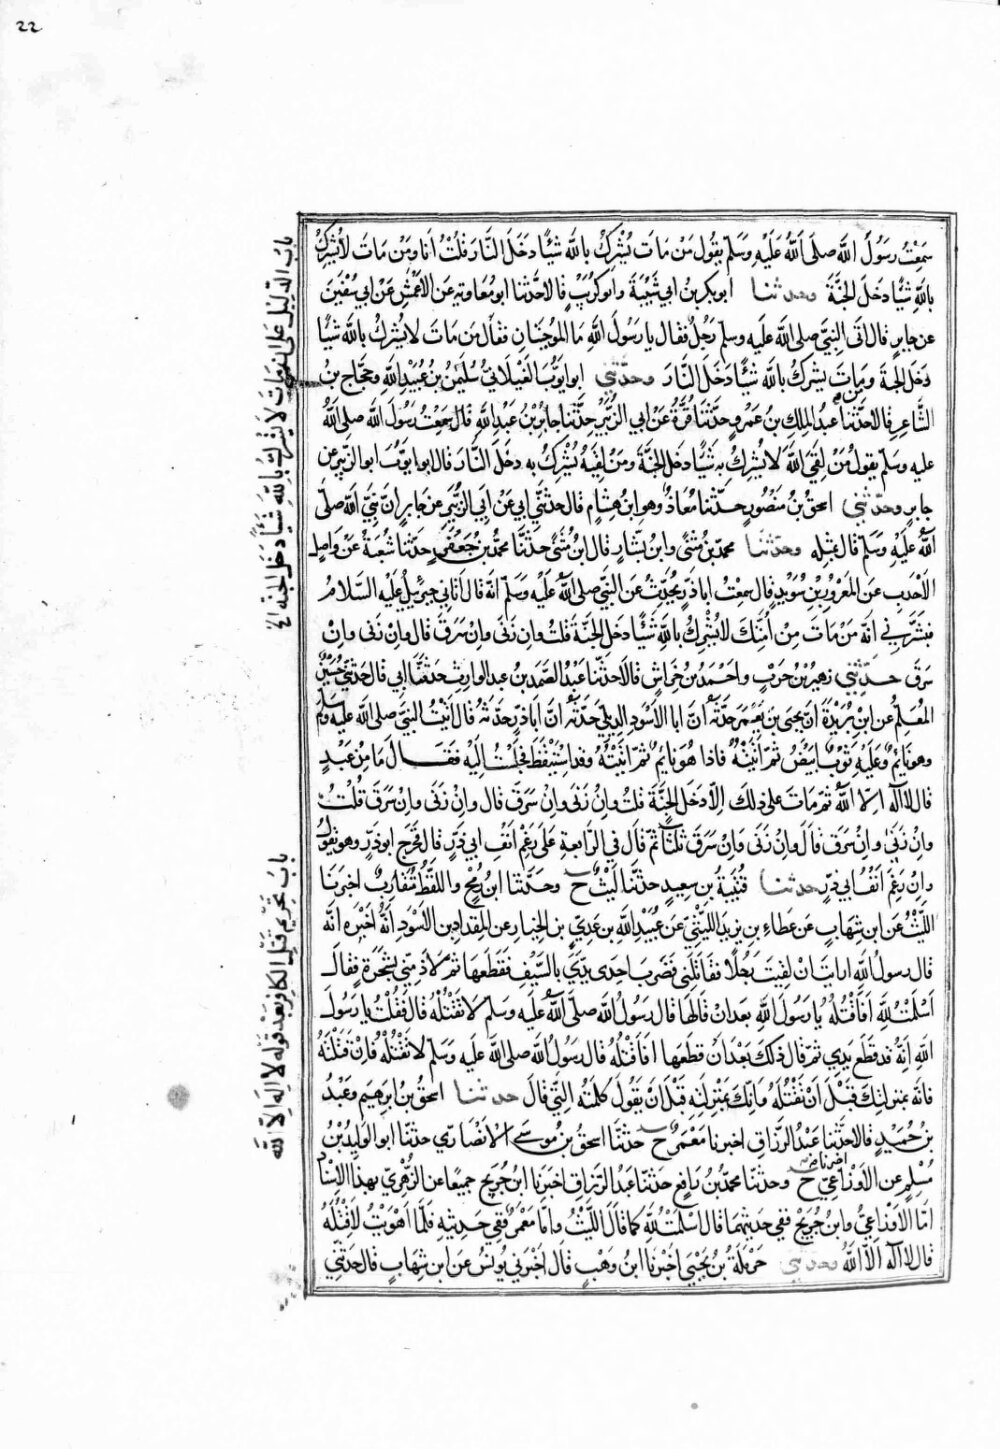 22
سَمِعْتُ رَسُولَ اللهِ صلى اللهُ عَلَيْهِ وَسَلَّم يقول مَنْ مَاتَ يُشْرِكُ بالله شيئًا دَخَلَ النَّارَ قلْتُ انا ومَنْ مَاتَ لا يُشْرِكُ
باللهِ شيئًا دخل الجَنَّةَ وحدثنا ابو بكر بن ابي شَيْبَةَ وابو كُرَيْبٍ قالا حَدَّثنا ابو مُعَاويه عن الأعْمَشِ عَنْ ابي سُفْيَنَ
عن جابرٍ قال اتَى النبيَّ صلى اللهُ عليه وسلم رَجُلٌ فقال يا رَسُولَ اللهِ مَا المُوجِبَتَانِ فقال من مَاتَ لا يُشرِكُ بالله شيئًا
دَخَلَ الجنةَ ومن مَاتَ يشرك بالله شيئًا دَخَلَ النَّارَ وحدّثني ابو ايوبَ الغَيْلَانيُّ سُلَيْمَنُ بن عُبَيْدِ اللهِ وحَجَّاجُ بنُ
الشَّاعِرِ قالا حَدَّثنا عبدُ الملِكِ بن عَمْروٍ حَدَّثنَا قُرَّةُ عَنْ ابي الزُّبَيْرِ حَدَّثَنا جابرُ بْنُ عَبْدِ اللهِ قال سَمِعْتُ رَسُولَ الله صلى اللهُ
عليه وسَلّم يقول مَنْ لَقِيَ اللهَ لا يُشرِكُ بِه شَيْئًا دخل الجَنَّةَ ومَنْ لَقِيَهُ يُشْرِكُ به دخل النَّارَ قال ابو ايُّوبَ ابو الزبير عن
جابرٍ وحدّثني اسحقُ بنُ مَنْصُورٍ حدّثنا مُعَاذٌ وهو ابن هِشَامٍ قال حدثني ابي عَنْ ابي الزُّبَيْرِ عن جَابرٍ انّ نبيَّ الله صلّى
اللهُ عليهِ وسَلّم قال بمثلِه وحدّثنا محمّد بن مُثنىً وابن بَشَّارٍ قال ابن مُثنىً حدثنا محمّدُ بن جَعْفَرٍ حدّثنا شُعبَةُ عَنْ واصِلٍ
الأحْدَبِ عَنِ المَعْرُورِ بْنِ سُوَيْدٍ قال سمِعْتُ ابا ذرٍّ يُحَدِّثُ عَن النّبيّ صلى اللهُ عليه وسلم انَّهُ قال اتاني جبرئيلُ عليه السّلامُ
فبَشَّرَني انّه مَنْ مَاتَ مِنْ اُمَّتِكَ لا يُشْرِكُ باللهِ شَيْئًا دخل الجَنَّةَ قلتُ وان زنى وانْ سَرَقَ قال وانْ زنى وانْ
سَرَقَ حدّثني زهيرُ بْنُ حَرْبٍ واحْمَدُ بن خِرَاشٍ قالا حَدّثنا عَبدُ الصَّمَدِ بن عبد الوارثِ حَدّثَنا ابي قال حَدّثني حُسَيْنٌ
المُعَلِّمُ عن ابْنِ بُرَيْدَةَ انّ يحيى بن يَعْمَرَ حَدّثه انَّ ابا الأسْوَدِ الدِيليَّ حَدّثه انّ اَباذَرٍّ حَدثهُ قال اَتَيْتُ النّبيَّ صلى الله عليه وسلّم
وهو نايمٌ وعَلَيْهِ ثَوْبٌ ابيَضُ ثمّ اَتَيْتُهُ فاذا هُوَ نايمٌ ثُمّ اتَيْتُهُ وقد اسْتَيْقَظَ فجلسْتُ اليْهِ فقال مَا مِنْ عَبْدٍ
قال لا اله الا اللهُ ثمّ مَاتَ على ذلك الاّ دخل الجَنَّةَ قلتُ وانْ زنى وانْ سَرَقَ قال وانْ زَنى وانْ سَرَقَ قلْتُ
وانْ زَنى وانْ سرَقَ قال وانْ زَنى وانْ سَرَقَ ثلثًا ثمّ قَال في الرّابعةِ عَلَى رَغْمِ انْفِ ابي ذَرٍّ قال فخرج ابو ذَرٍّ وهو يقولُ
وانْ رَغِمَ انْفُ ابي ذرٍّ حدثنا قُتَيْبَةُ بن سعيدٍ حَدثنا لَيْثٌ ح وحدّثنا ابن رُمْحٍ واللفظُ مُتَقَاربٌ اخبرنا
اللّيْثُ عَن ابنِ شِهَابٍ عَن عَطَاءِ بنِ يزيدَ الليْثيّ عَن عُبَيْدِ اللهِ بن عَدِيِّ بن الخِيَارِ عن المِقدادِ بن الأسْوَدِ انّهُ اَخْبَرَه انّه
قال يا رسولَ اللهِ ارايْتَ انْ لقيتُ رَجُلًا فقاتلني فضَرَبَ احدى يَدَيَّ بالسَّيْفِ فقطَعَها ثمّ لاذَ مِنّي بشَجَرَةٍ فقال
اَسْلَمْتُ لِلهِ اَفاَقتُلُهُ يا رَسُولَ اللهِ بعد انْ قالها قال رَسُولُ اللهِ صلّى اللهُ عليه وسلم لا تَقْتُلْهُ قال فقُلتُ يا رسولَ
اللهِ اِنّهُ قد قطَعَ يَدِي ثمّ قال ذلك بَعْدَ اَنْ قطعَها افَاقتُلُهُ قال رَسُولُ اللهِ صلى الله عليه وسَلّم لا تَقْتُلْهُ فانْ قَتَلْتَهُ
فانّه بمنزلتِكَ قَبْلَ اَنْ تَقْتُلَهُ وَانّكَ بمَنْزِلتِهِ قَبْلَ اَنْ يَقُولَ كلمتَهُ التي قَالَ حدثنا اسحقُ بنُ اِبرَهِيمَ وعَبْدُ
بنُ حُمَيْدٍ قالا حَدَّثَنا عَبْدُ الرَّزَاق اخبرنا مَعْمَرٌ ح حدّثنا اسحقُ بنُ موسى الانْصَاريّ حدّثنا ابو الوَليدُ بْنُ
اخبرنا
مُسْلِمٍ عن الأوْزاعيّ ح وحدثنا محمدُ بن رَافِعٍ حَدّثنا عَبدُ الرّزّاقِ اخبَرَنا ابنُ جُرَيجٍ جميعًا عن الزُّهْريّ بهذا الاِسْنَادِ
امّا الأوزاعيُّ وابن جُرَيْجٍ ففي حَديثهِمَا قَالَ اسلمتُ لِلهِ كما قال اللَّيْثُ وامّا مَعْمَرٌ ففي حَديثهِ فلمّا اَهْوَيْتُ لِاَقْتُلَهُ
قال لا اله الا الله وحدثني حَرْمَلَةُ بنُ يَحْيَى اخبَرَنا ابنُ وَهْبٍ قالَ اَخْبَرَني يُونُسُ عَنِ ابنِ شِهَابٍ قال حَدّثني
بابُ الدّليل على ان من مات لا يُشْرِكُ باللهِ شَيْئًا دَخَلَ الجنة
باب تحريم قتل الكافر بَعْدَ قوله لا اِلهَ اِلّا الله